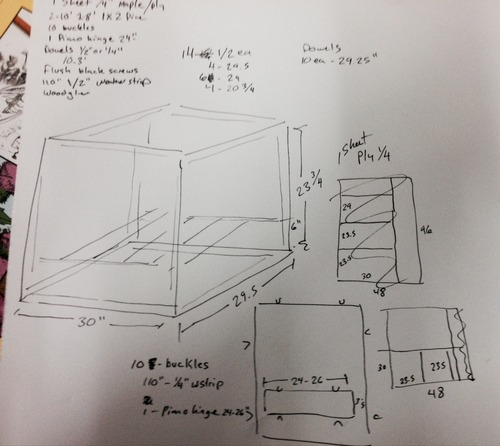 1 Sheet 1/4" Maple/ply
10 buckles
1 Piano hinge 24"
Dowels 1/8" or 1/4"
10.3'
Flush black screws
110" 1/2" weather strip
Woodglue
1/2 ea
4 - 29.5
6 - 29
4 - 20 3/4
Dowels
10 ea - 29.25"
23 3/4
6"
2
29.5
30"
1 Sheet
Ply 1/4
29
23.5
23.5
30
96
48
30
23.5
48
10 - buckles
110" - 1/4" wstrip
1 - Piano hinge 24-26"
24-26"